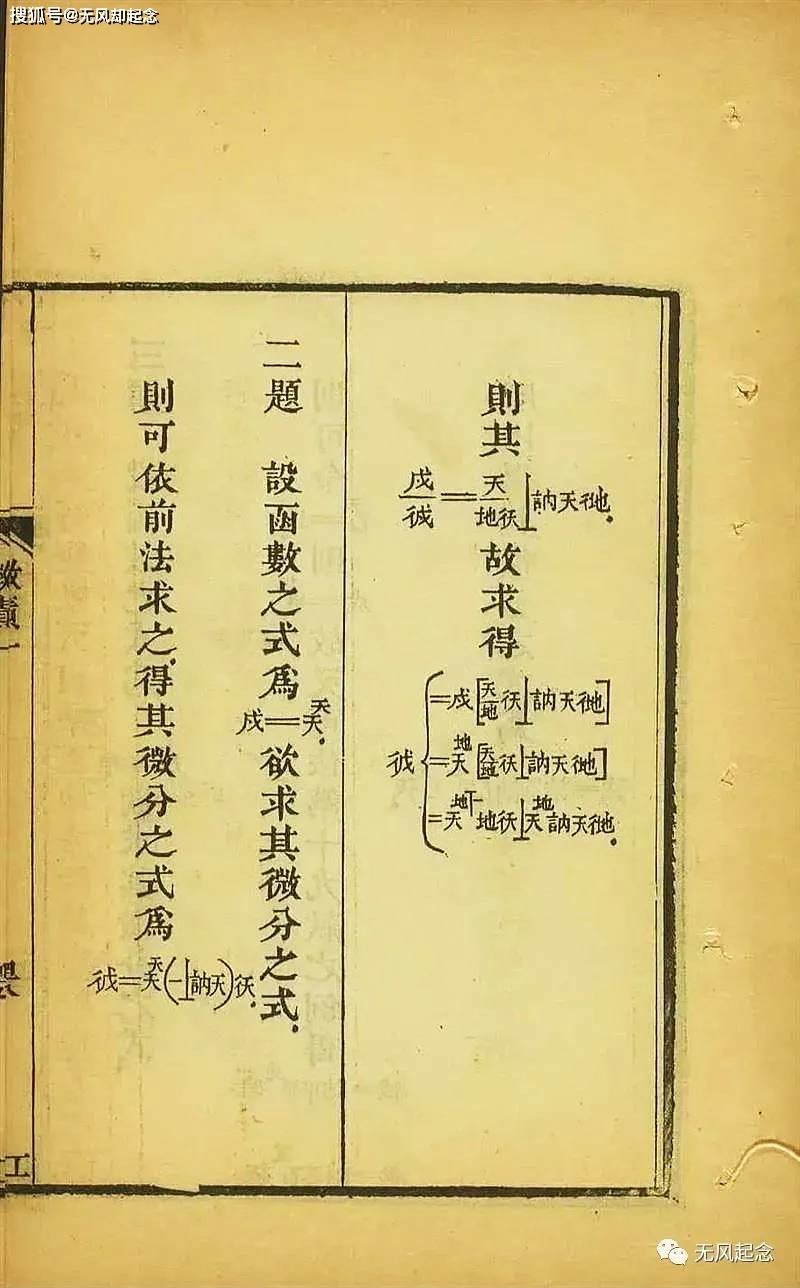 搜狐号@无风却起念
則其
戍/㣤＝天/地彳天⊥訥天彳地
故求得
㣤{＝戍[天/地彳天⊥訥天彳地]
＝天^地[天/地彳天⊥訥天彳地]
＝天^地丅一地彳天⊥天^地訥天彳地
二題　設函數之式爲
戍＝天^天
欲求其微分之式
則可依前法求之得其微分之式爲
㣤＝天^天(一⊥訥天)彳天
无风起念